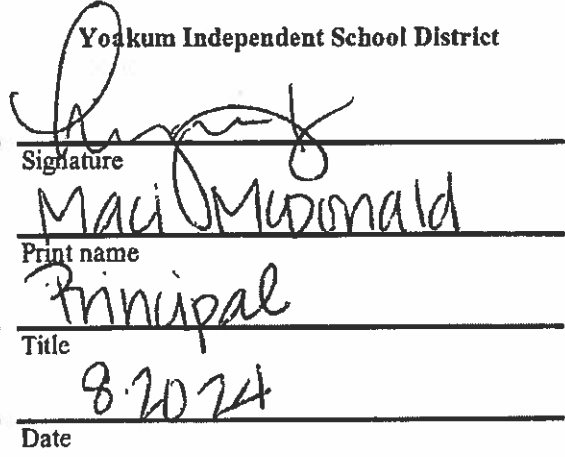 Yoakum Independent School District
Signature
Maci McDonald
Print name
Principal
Title
8.20 24
Date